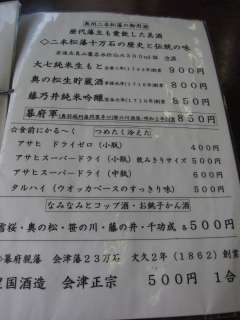 奥州二本松藩の御用酒
歴代藩主も愛飲した美酒
◇二本松藩十万石の歴史と伝統の味
300ml 冷酒
大七純米生もと 900円
奥の松生貯蔵酒 800円
藤乃井純米吟醸 850円
☆食前にかる〜く つめたく冷えた
アサヒ ドライゼロ(小瓶) 400円
アサヒスーパードライ(中瓶)飲みきりサイズ 550円
アサヒスーパードライ(小瓶) 400円
タルハイ(ウオッカベースのすっきり味) 500円
なみなみとコップ酒・お銚子かん酒
雪桜・奥の松・笹の川・藤の井・千功成 各500円
幕府親藩 会津藩23万石 文久2年(1862)創業
国酒造 会津正宗 500円 1合